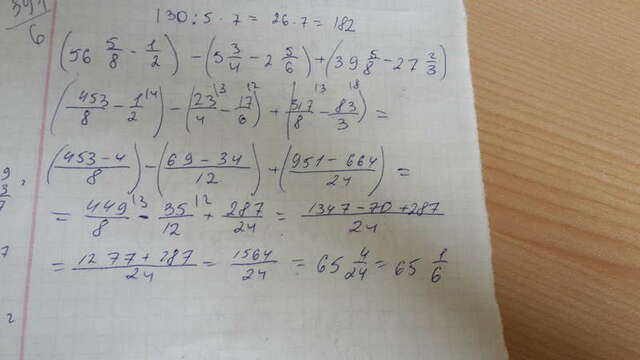 391/6
130 : 5 · 7 = 26 · 7 = 182
(56 5/8 - 1/2) - (5 3/4 - 2 5/6) + (39 5/8 - 27 2/3)
(453/8 - 1/2 \4) - (23/4 \3 - 17/6 \2) + (317/8 \3 - 83/3 \8) =
(453-4/8) - (69-34/12) + (951-664/24) =
= 449/8 \3 - 35/12 \2 + 287/24 = 1347-70+287/24
= 1277+287/24 = 1564/24 = 65 4/24 = 65 1/6